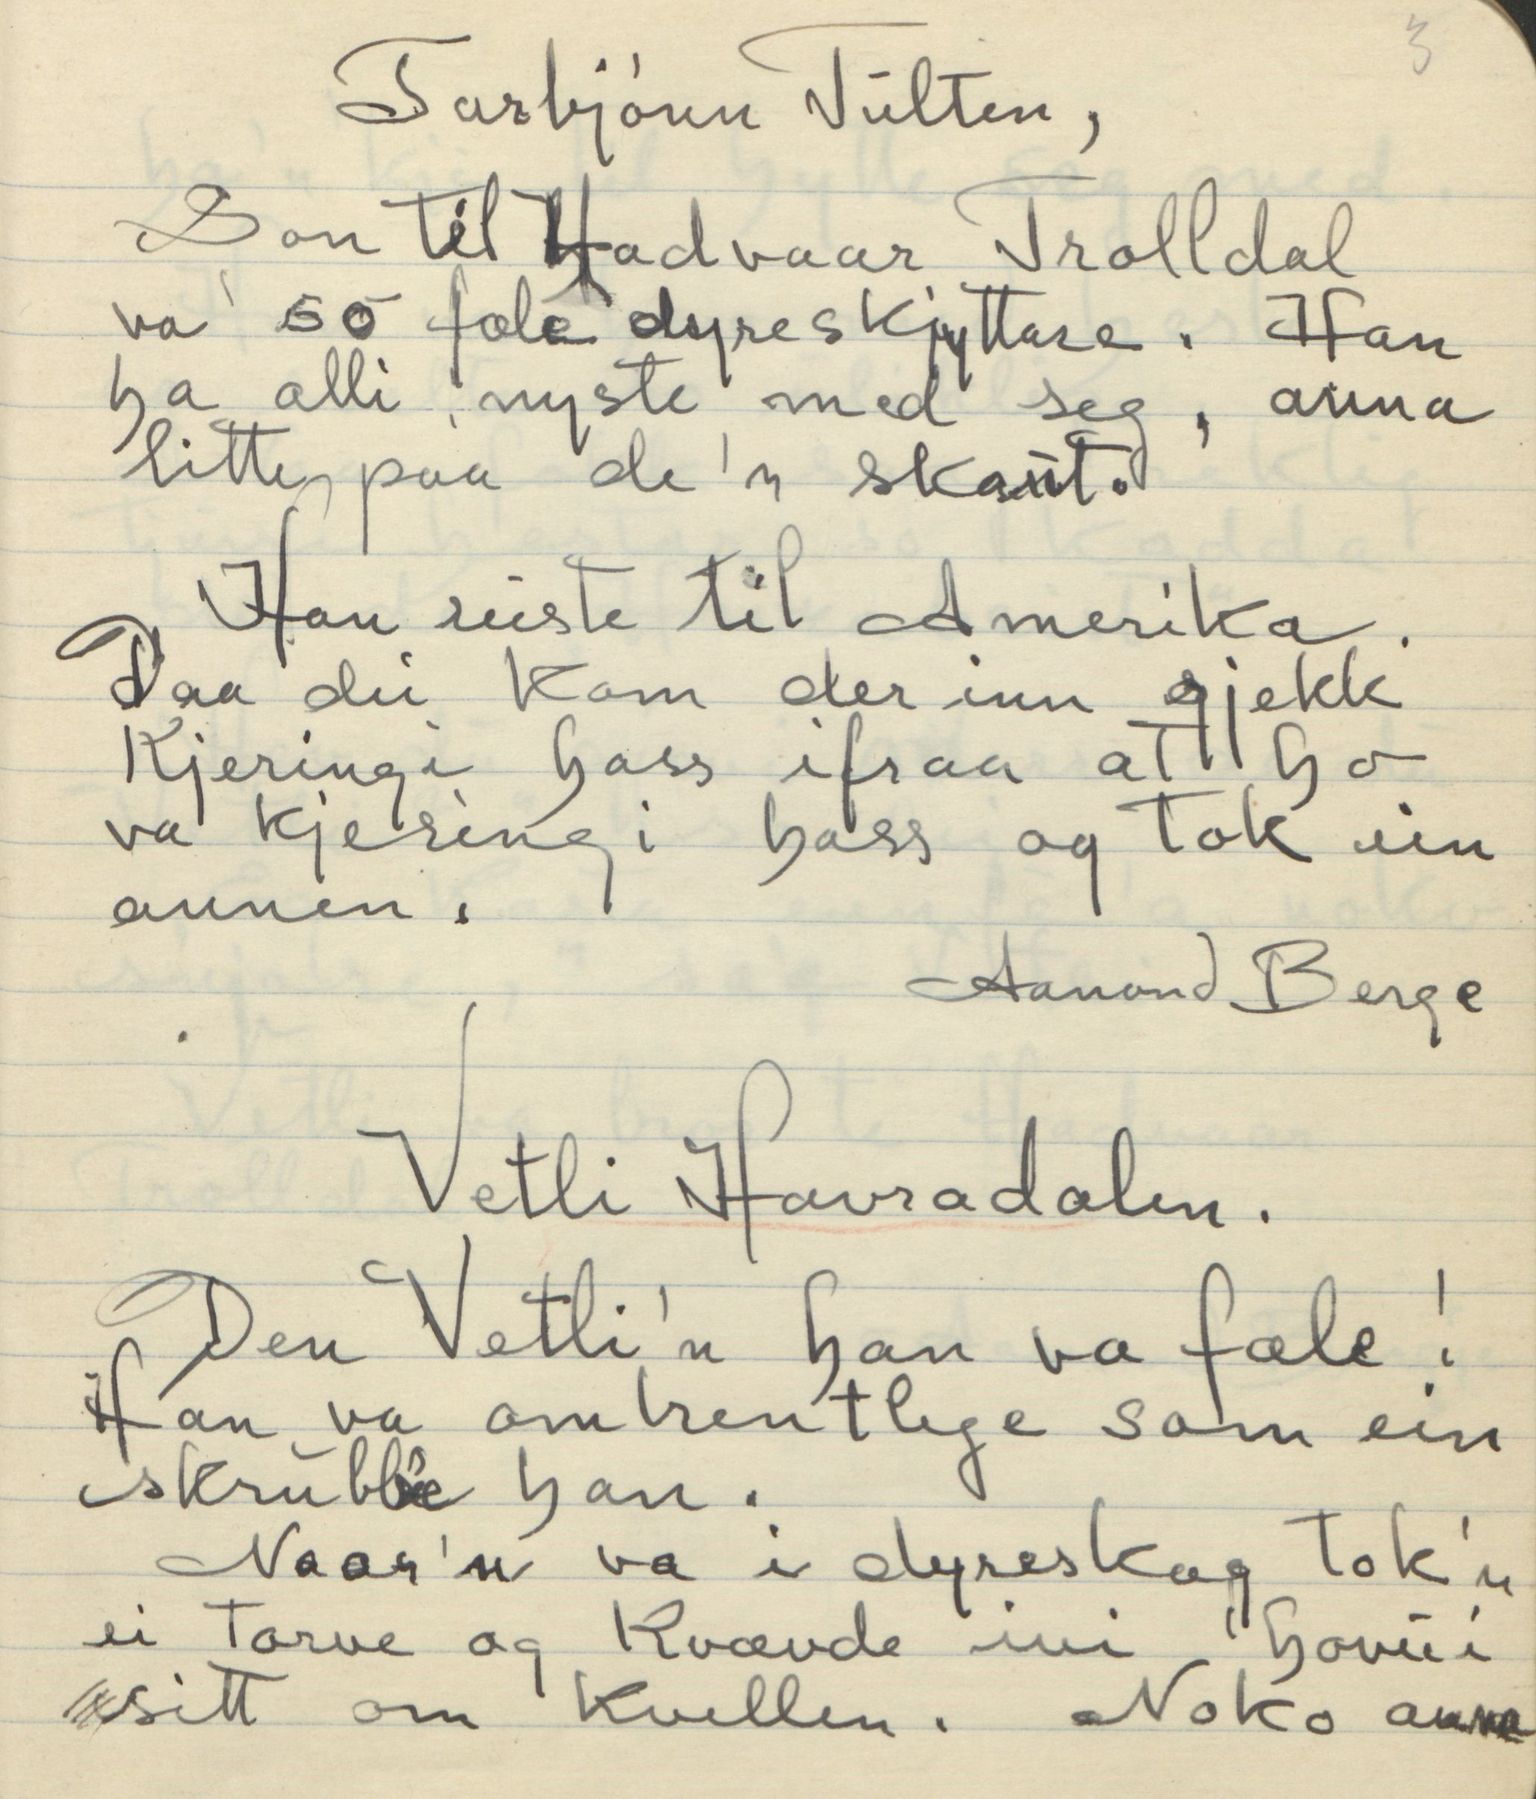 3
Tarbjónn Tülten,
Son til Hadvaar Trolldal
va so fæle dyreskjyttare. Han
ha alli nyste med seg, anna
litte paa de'n skaüt.
Han reiste til Amerika.
Daa dei kom der inn gjekk
Kjeringi hass ifraa at ho
va kjeringi hass og tok ein
annen.
Aamond Berge
Vetli Havradalen.
Den Vetli'n han va fæle!
Han va ombrentlege som ein
skrübbe han.
Naar'n va i dyreskog tok'n
ei torve og kvævde ivi hovüi
sitt om kvellen. Noko anna